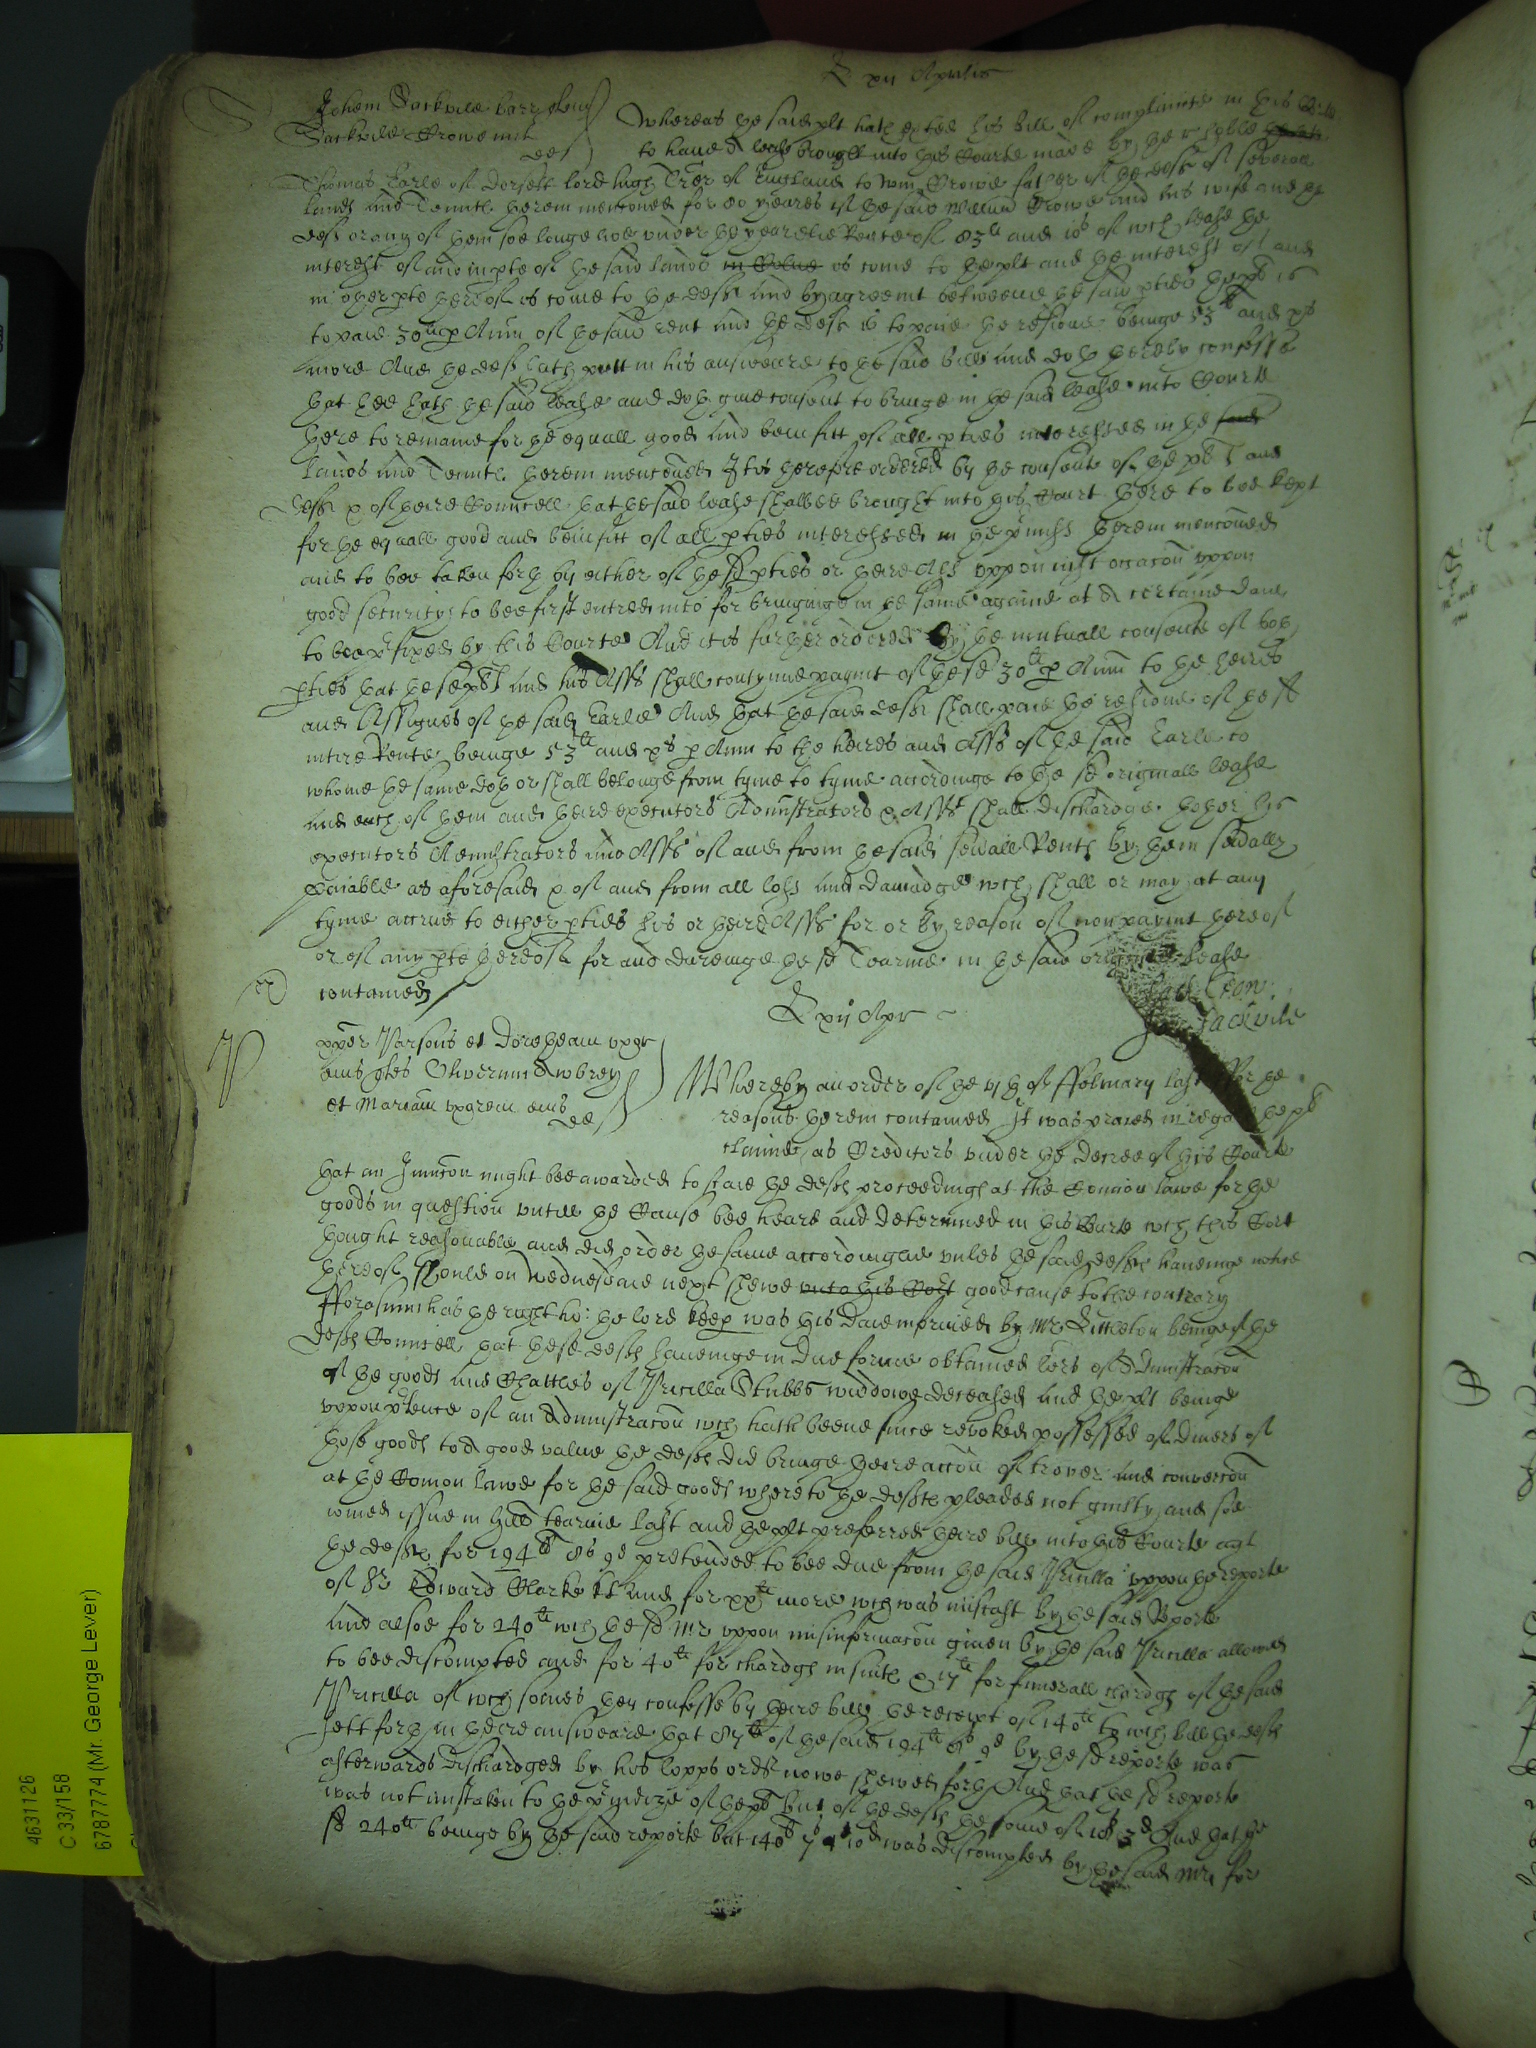 xii Aprilis
Sackvile
Sackvile Crowe
def
Whereas the said plt hath exhited his bill of complainte in this Courte
to have a lease brought into this Courte made by the right hoble
Thomas Earle of Dorsett lord high Trer of England to Wm Crowe father of the deft of severall
lands and Tenmts therein menconed for 80 yeares if the said William Crowe and his wife and the
deft or any of them soe longe live under the yearelie Rente of 83li and 10s of wch lease the
interest of and in pte of the said lands in Value is come to the plt and the interest of and
in other pte thereof is come to the deft And by agreemt betweene the said pties the plt is
to paie 30li p Ann of the said rent and the deft is to paie the residue beinge 53li and xs
more And the deft hath putt in his answeare to the said bill and doth thereby confesse
that hee hath the said lease and doth give consent to bringe in the said lease into Courte
there to remaine for the equall good and benifitt of all pties interessed in the said
lands and Tenmts therein menconed It is therefore ordered by the consente of the plt and
deft & of theire Councell that the said lease shalbee brought into this Court there to bee kept
for the equall good and benifitt of all pties interessed in the pmisss therein menconed
and to bee taken forth by either of the sd pties or theire Ass uppon iust occacon uppon
good security to bee first entred into for bringinge in the same againe at a certaine daie
to bee pfixed by this Courte And it is further ordered by the mutuall consente of both
pties that the sd plt and his Asss shall contynue paymt of the sd 30li p Ann to the heires
and Assignes of the said Earle And that the said deft shall paie the residue of the sd
intire Rente beinge 53li and xs p Ann to the heires and Asss of the said Earle to
whome the same doth or shall belonge from tyme to tyme accordinge to the sd originall lease
and each of them and theire executors Administrators & Asss shall dischardge thother his
executors Administrators and Asss of and from the said sevall Rents by them sevally
paiable as aforesaid & of and from all loss and damadge wch shall or may at any
tyme accrue to either pties his or theire Asss for or by reason of non paymt thereof
or of any pte thereof for and dureinge the sd Tearme in the said originall lease
contained
Sack: Crow:
Sackvile
xii Apr
xpofer Parsons et Dorotheam uxor
eius plts Oliverum Awbrey
et Mariam uxorem eius
def
Whereby an order of the vth of ffebruary last ffor the
reasons therein contained It was praied in regard the plts
clayme as Creditors under the decree of this Courte
that an Iniuncon might bee awarded to staie the defts proceedings at the Common lawe for the
goods in question untill the Cause bee heard and determined in this Courte wch this Cort
thought reasonable and did order the same accordinglie unles the said defts haveinge notice
thereof should on wednesdaie next shewe unto this Cort good cause to the contrary
fforasmuch as the right ho: the lord Keep was this daie informed by Mr Littleton beinge of the
defts Councell that the sd defts haveinge in due forme obtained lres of Administracon
of the goods and Chattles of Pricilla Stubbs widdowe deceased and the plt beinge
uppon ptence of an Administracon wch hath beene since revoked possessed of divers of
those goods to a good value the defts did bringe theire accon of trover and convercon
at the Comon lawe for the said goods whereto the defts pleaded not guilty and soe
ioined issue in hill tearme last and the plt preferred theire bill into this Courte agt
the defts for 194li 8s 9d pretended to bee due from the said Pricilla uppon the reporte
of Sr Edward Clarke kt and for xxli more wch was miscast by the said Reporte
And alsoe for 240li wch the sd Mr uppon misinformacon given by the said Pricilla allowed
to bee discompted and for 40li for chardgs in suite & 17li for funerall chardgs of the said
Pricilla of wch somes they confesse by theire bill the receipt of 140li to wch bill the defts
sett forth in theire answeare that 87li of the said 194li 8s 9d by the sd reporte was
afterwards dischardged by his lopps order nowe shewed forth And that the sd reporte
was not mistaken to the piudize of the plt but of the defts the some of 10s 3d And that the
sd 240li beinge by the said reporte but 140li 7s 10d was discompted by the said Mr for
4631126
C 33/158
6787774 (Mr. George Lever)